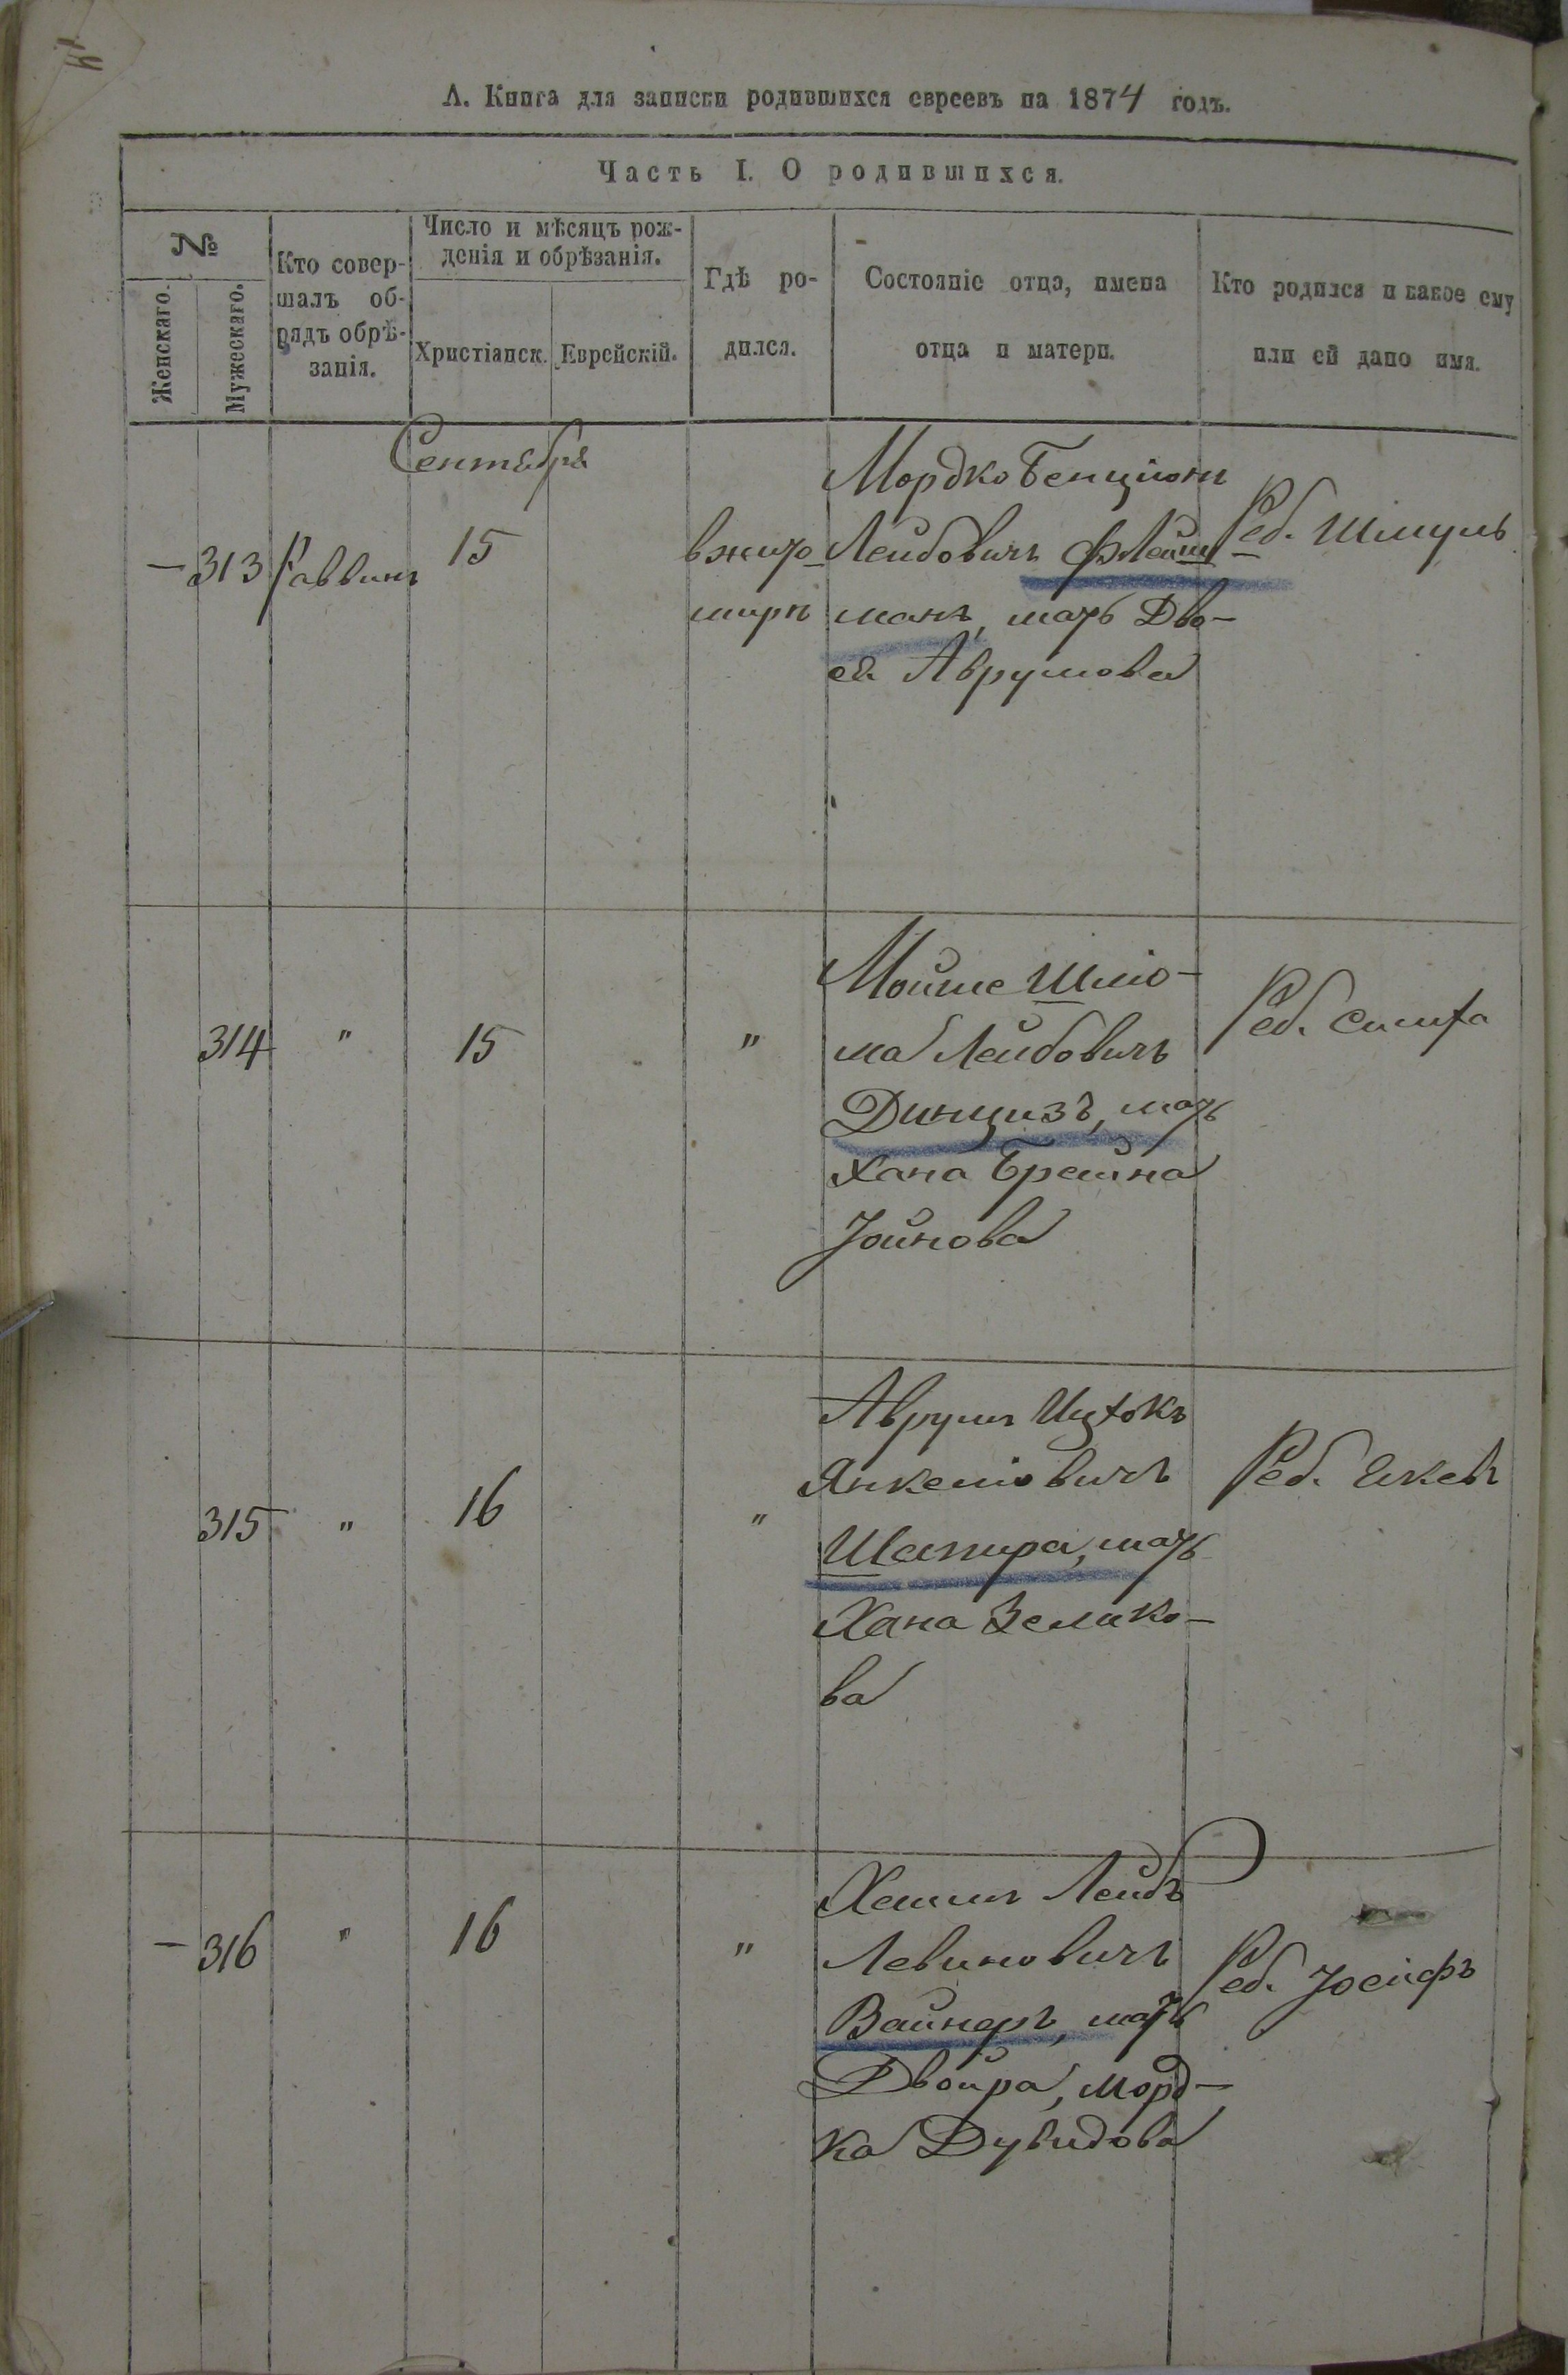 А. Книга для записки родившихся евреевъ на 1874 годъ.
Часть I. О родившихся.
№
Женскаго.
Мужескаго.
Кто совер-
шалъ об-
рядъ обрѣ-
занія.
Число и мѣсяцъ рож-
денія и обрѣзанія.
Христіанск.
Еврейскій.
Гдѣ ро-
дился.
Состояніе отца, имена
отца и матери.
Кто родился и какое ему
или ей дано имя.
Сентября
– 313
Раввинъ
15
в жито-
мирѣ
Мордко Бенціонъ
Лейбовичъ Флейш-
манъ, мать Дво-
ся Аврумова
Реб. Шмуль
314
"
15
"
Мойше Шлио-
ма Лейбовичъ
Динцизъ, мать
Хана Брейна
Іойнова
Реб. Симха
315
"
16
"
Аврумъ Ицхокъ
Янкеліовичъ
Шапира, мать
Хана Зелико-
ва
Реб.
– 316
"
16
"
Хаимъ Лейбъ
Левиновичъ
Вайнеръ, мать
Двойра, Морд-
ка Дувидова
Реб. Іосифъ